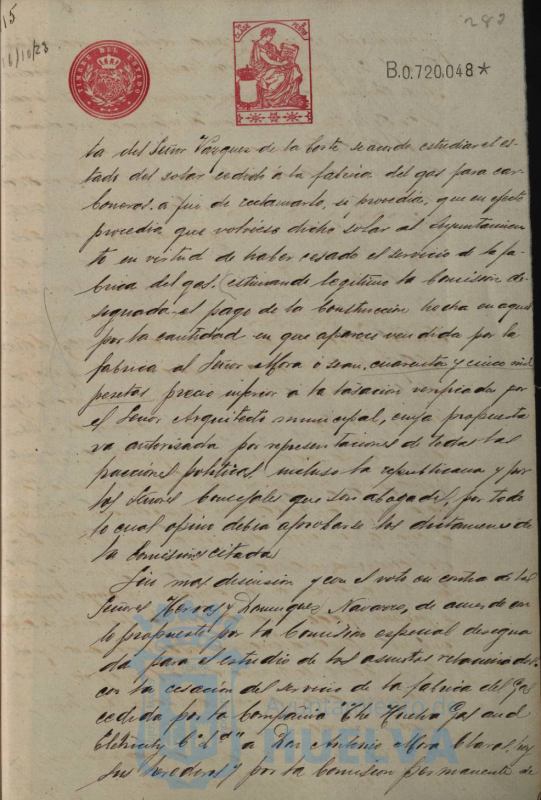 15
16/10/23
282
TIMBRE DEL ESTADO
B.0.720.048*
ta del Señor Vazquez de la Corte se acordo estudiar el es-
tado del solar cedido á la fabrica del gas para car-
boneras á fin de reclamarlo, si procedia, que en efecto
procedia que volviese dicho solar al Ayuntamien-
to en virtud de haber cesado el servicio de la fa-
brica del gas, estimando legitimo la Comision de-
signada el pago de la Construccion hecha en aquel
por la cantidad en que aparece vendida por la
fabrica al Señor Mora ó sean, cuarenta y cinco mil
pesetas precio inferior á la tasacion verificada por
el Señor Arquitecto municipal, cuya propuesta
va autorizada por representaciones de todas las
fracciones politicas, incluso la republicana y por
los Señores Concejales que son abogados, por todo
lo cual opino debia aprobarse los dictamenes de
la Comision citada
Sin mas discusion y con el voto en contra de los
Señores Hervas y Dominguez Navarro, de acuerdo en
lo propuesto por la Comision especial designa-
da para el estudio de los asuntos relacionados
con la cesacion del servicio de la fabrica del Gas
cedida por la Compañia "The Huelva Gas and
Electricity Cº Lᵈ" a Don Antonio Mora Claros, hoy
sus herederos, y por la Comision permanente de
Ayuntamiento de
HUELVA